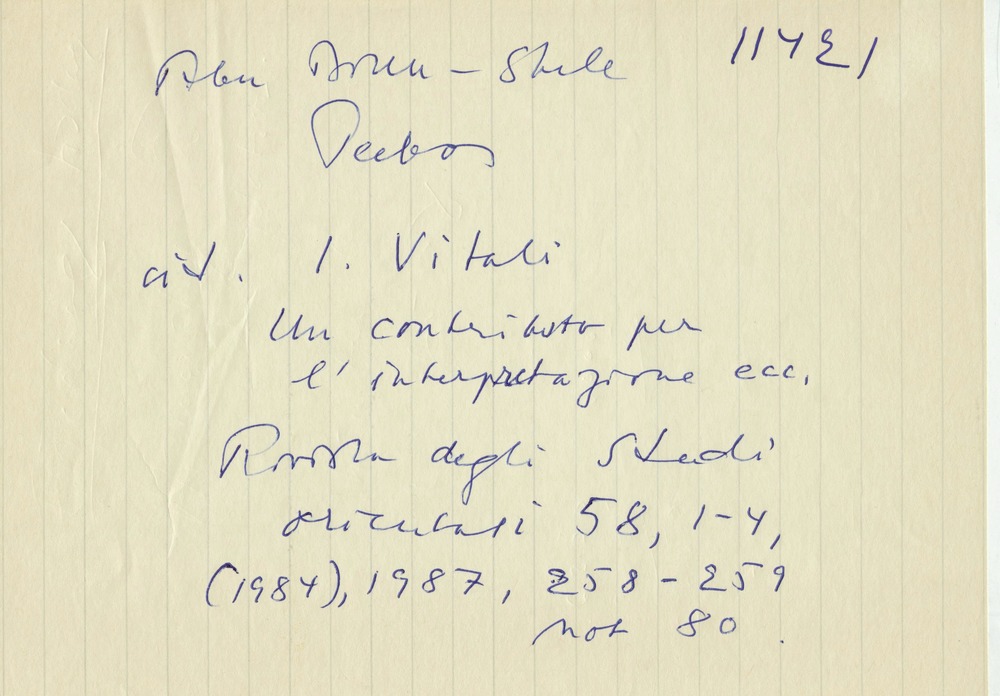 Abu Billu - Stele 11421
cit. I. Vitali
Un contributo per
l'interpretazione ecc.
Rivista degli Studi
orientali 58, 1-4,
(1984), 1987, 258-259
not 80.